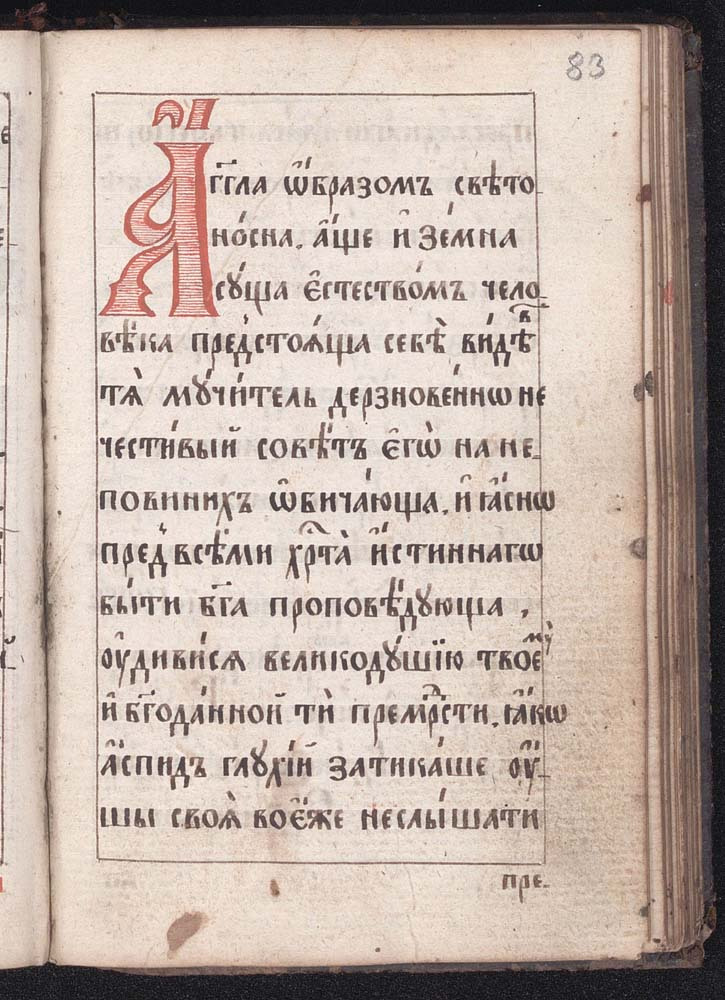 83
А҆́гг҃ла ѡ҆́бразомъ свѣто
но́сна, а҆́ще и҆ зе́мна
сꙋ́ща є҆стество́мъ чело-
вѣ́ка предстоѧ́ща себѣ̀ ви́дѣв
тѧ̀ мꙋчи́тель дерзнове́ннѡ не
чести́вый совѣ́тъ є҆гѡ̀ на не-
пови́нихъ ѡ҆блича́юща, и҆ ꙗ҆́снѡ
пред̾ всѣ́ми хрⷭ҇та̀ и҆́стиннагѡ
бы́ти бг҃а проповѣ́дꙋюща,
ᲂу҆диви́сѧ великодꙋ́шїю твоемꙋ̀
и҆ бг҃ода́нной тѝ премⷣрсти, ꙗ҆́кѡ
а҆́спидъ глꙋхі́й затика́ше ᲂу҆-
шы своѧ̀ во є҆́же неслы́шати
пре-